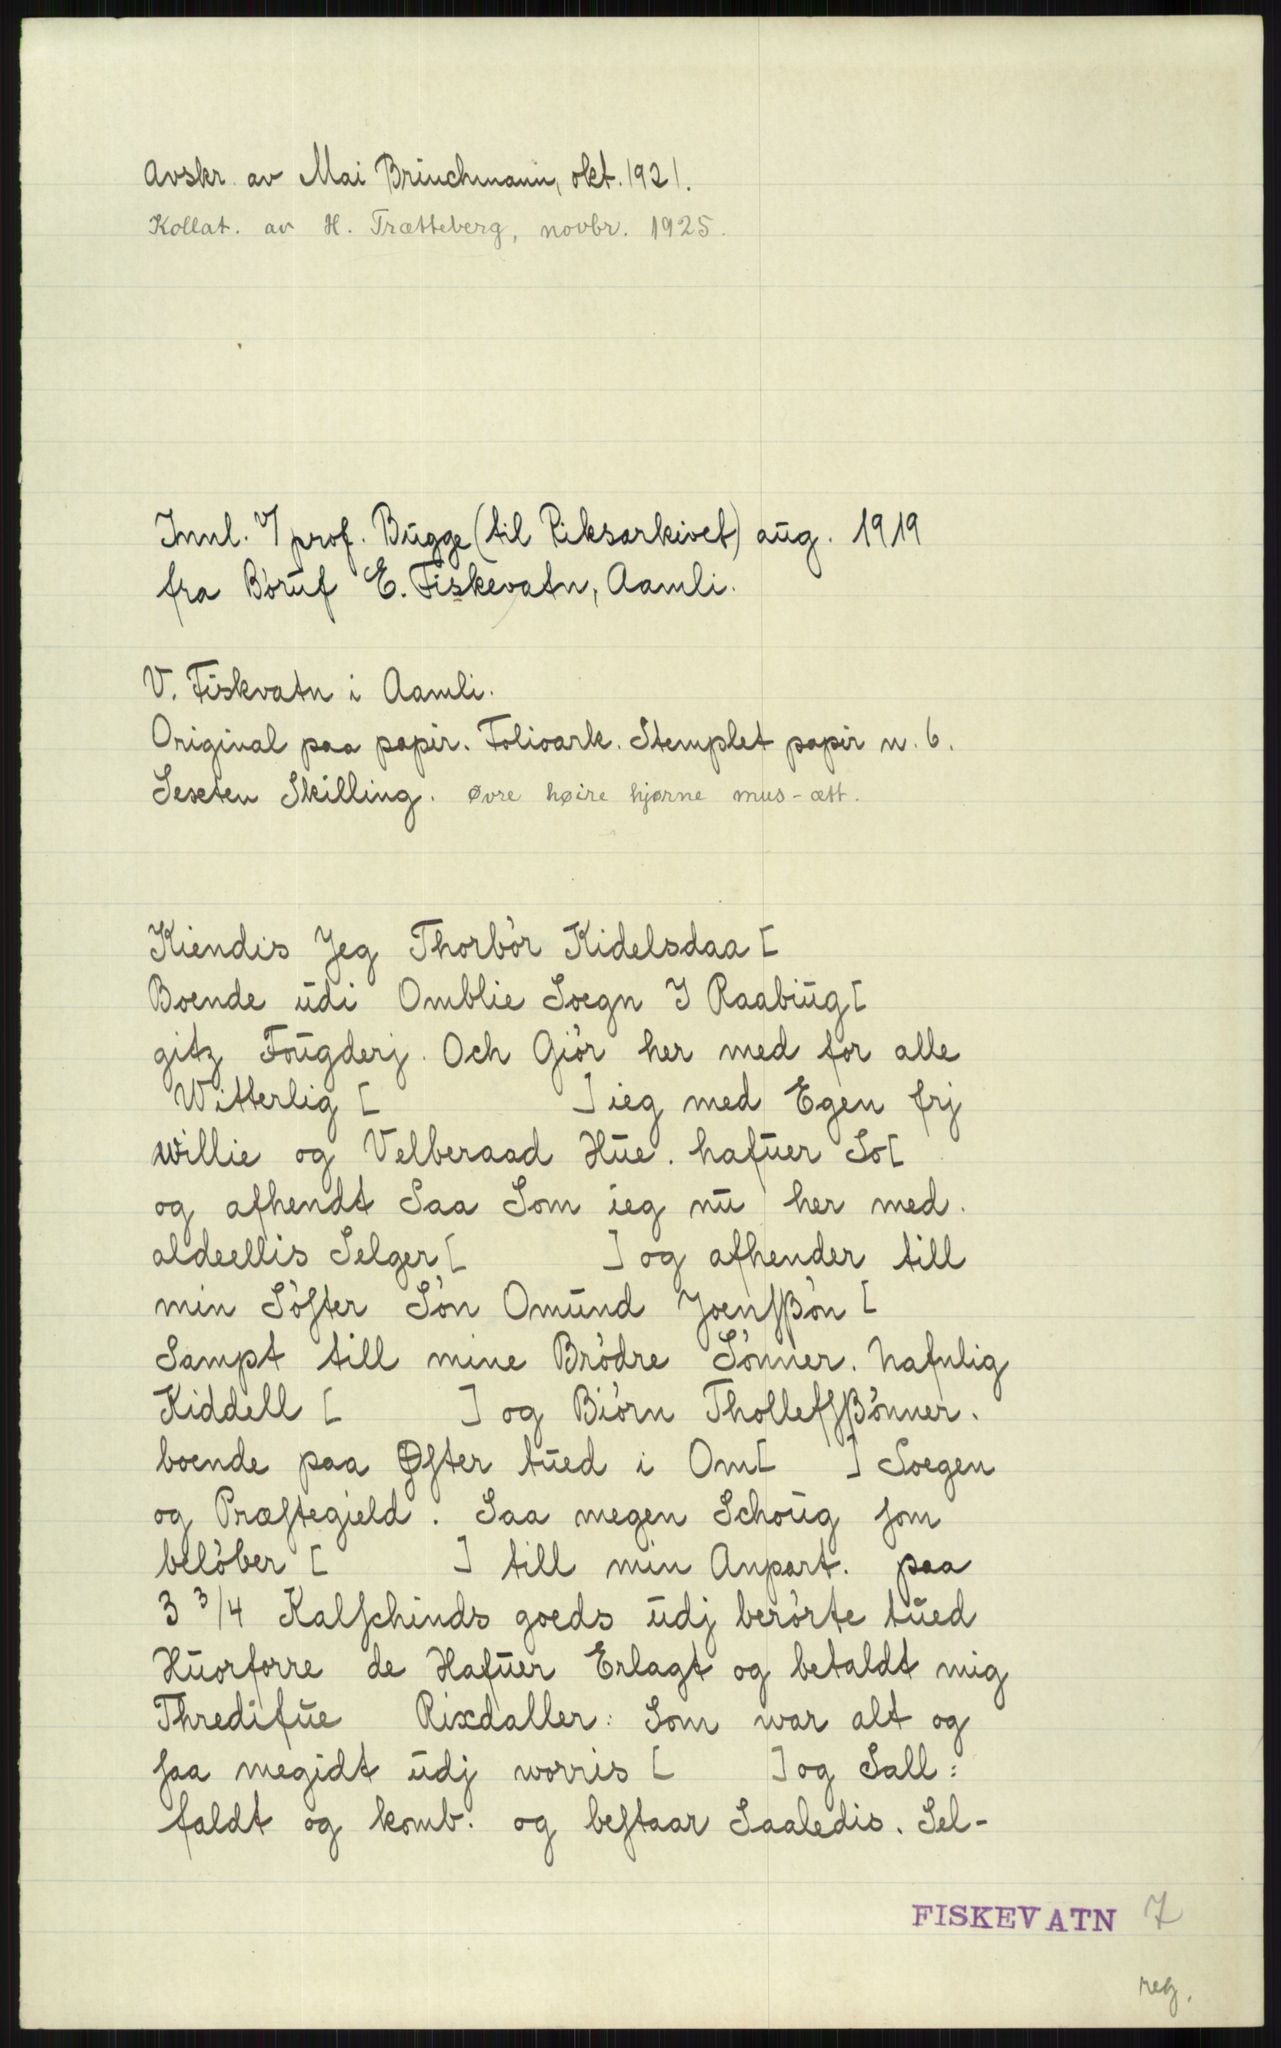 Avskr. av Mai Brinchmann, okt. 1921.
Kollat. av H. Trætteberg, novbr. 1925.
Innl. v/ prof. Bugge (til Riksarkivet) aug. 1919
fra Bóruf E. Fiskevatn, Aamli.
V. Fiskvatn i Aamli.
Original paa papir. Folioark. Stemplet papir n. 6.
Sexten Skilling. øvre høire hjørne mus-ætt.
Kiendis Jeg Thorbór Kidelsdaa [
Boende udi Omblie Soegn I Raabiug [
gitz Fougderj. Och Giór her med for alle
Witterlig [ ] ieg med Egen frj
willie og Velberaad Hue. hafuer So [
og afhendt Saa Som ieg nu her med.
aldeellis Selger [ ] og afhender till
min Sóſter Són Omund Joenſßón [
Sampt till mine Bródre Sónner. Nafnlig
Kiddell [ ] og Biórn Thollefſßónner.
boende paa Øſter tued i Om [ ] Soegen
og Præſtegield. Saa megen Schoug ſom
belóber [ ] till min Anpart. paa
3 3/4 Kalſchinds goeds udj berórte tued
Huorforre de Hafuer Erlagt og betaldt mig
Thredifue Rixdaller: Som war alt og
ſaa megidt udj worris [ ] og Sall:
faldt og komb. og beſtaar Saaledis. Sel-
FISKEVATN 7
reg.